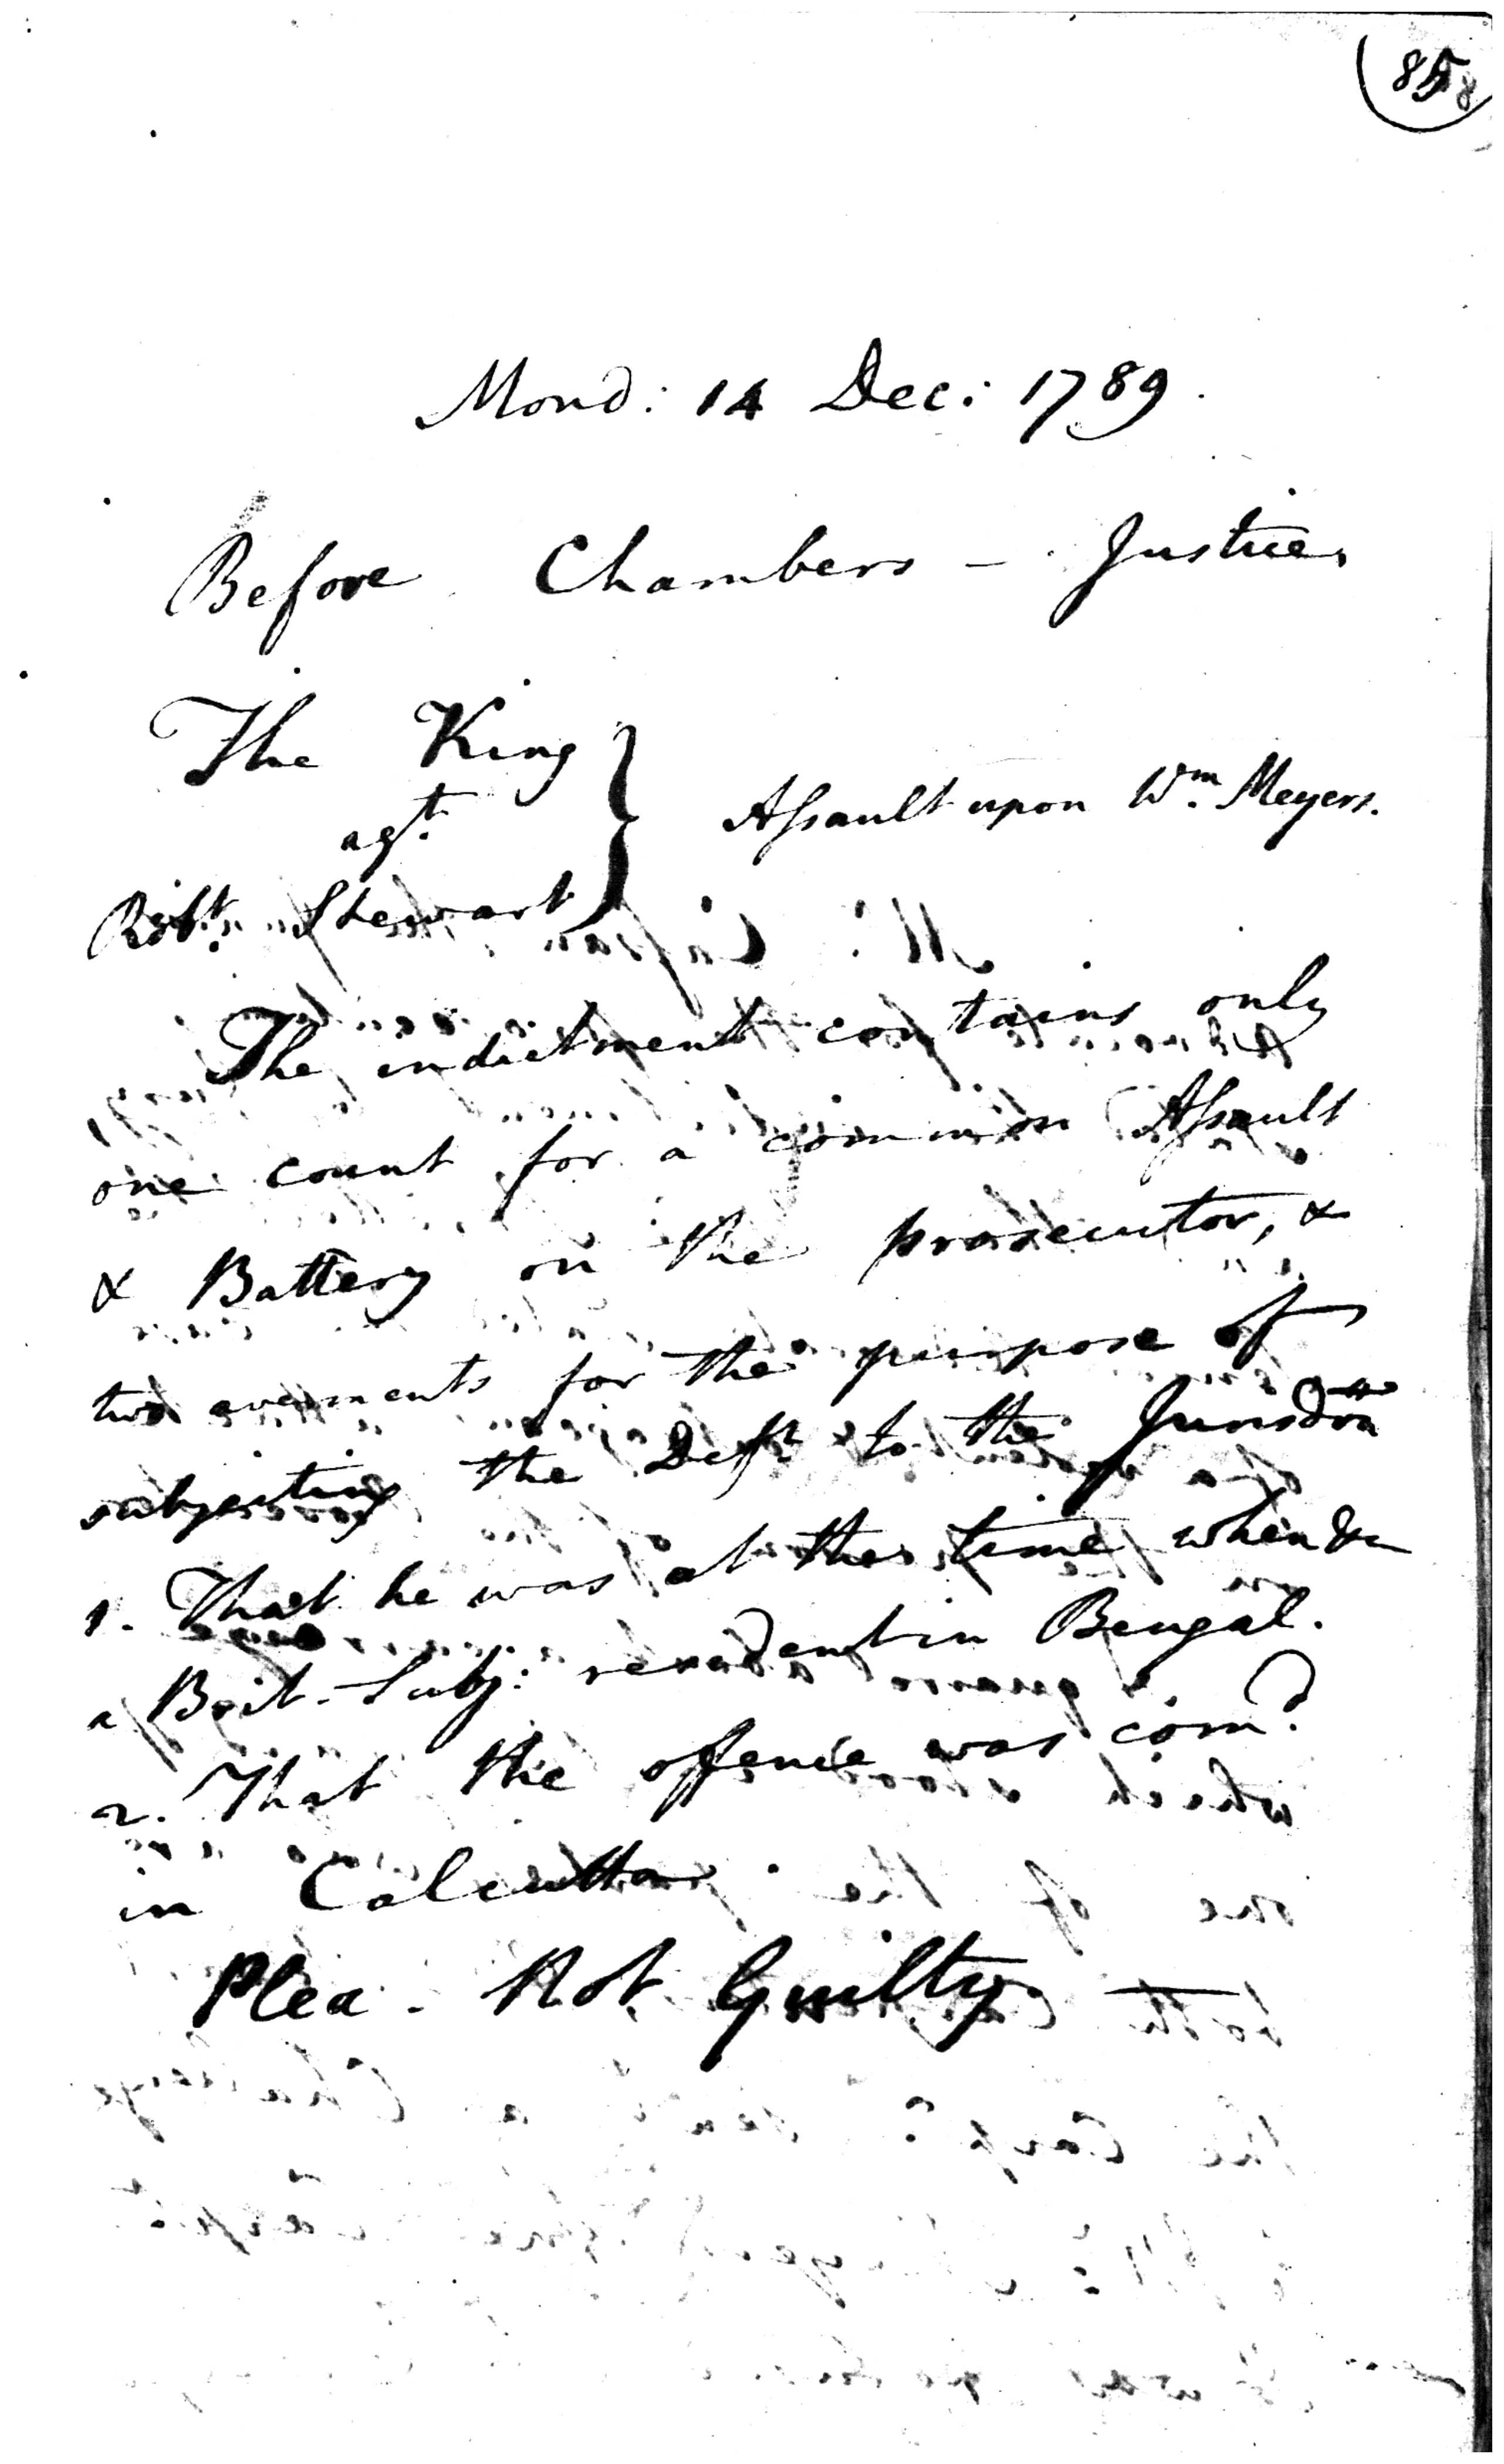 Mond: 14 Dec: 1789.
Before Chambers - Justice.
The King
agt.
Assault upon Wm. Meyers.
Robt. Stewart
The indictment contains only
one count for a common Assault
& Battery on the prosecutor, &
two averments for the purpose of
subjecting the Deft to the Jurisdon
1. That he was at the time when &c
a Brit. Subj: resident in Bengal.
2. That the offence was comd.
in Calcutta.
Plea - Not Guilty —